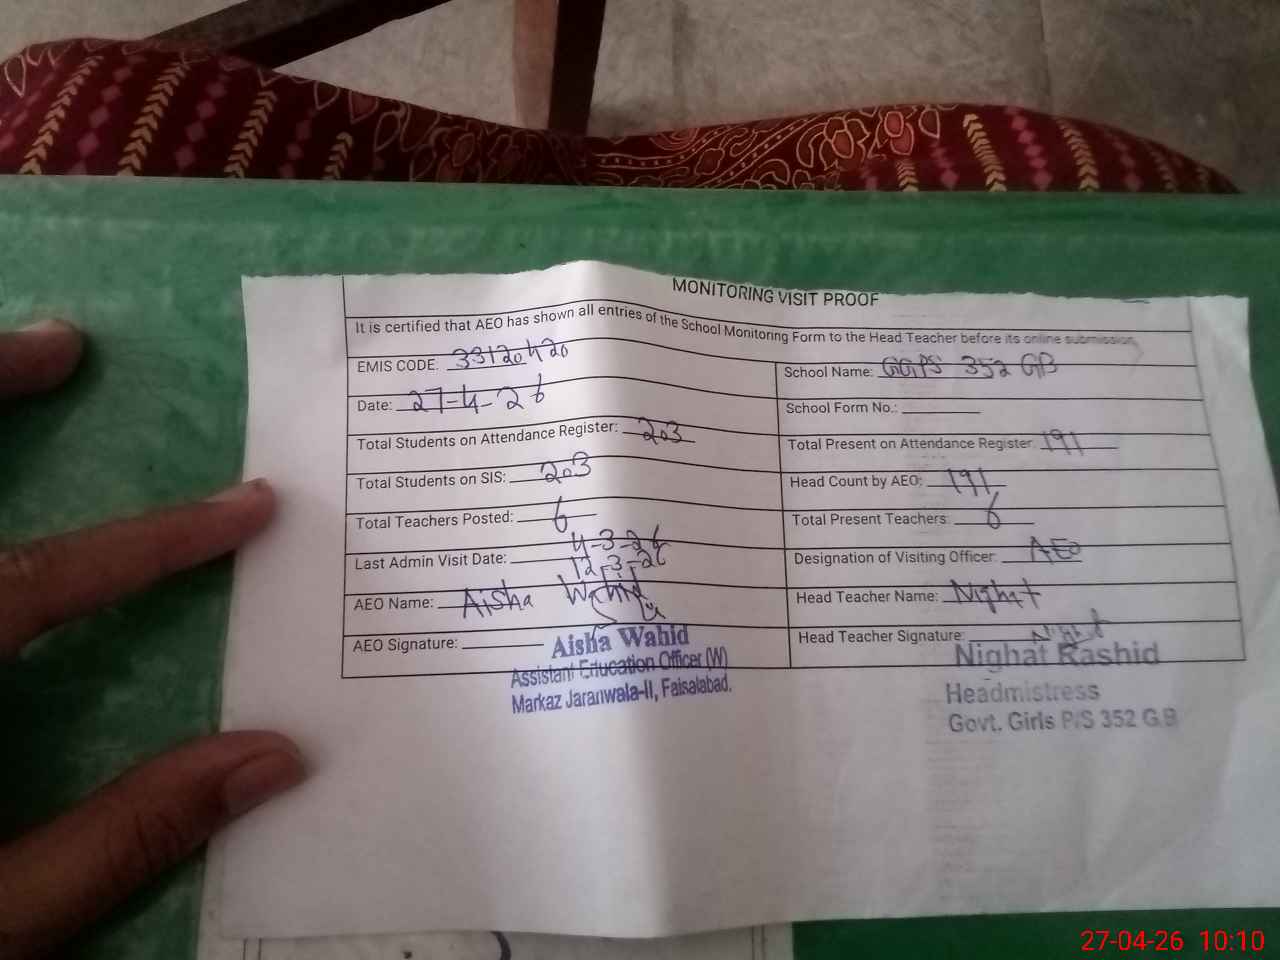 MONITORING VISIT PROOF
It is certified that AEO has shown all entries of the School Monitoring Form to the Head Teacher before its online submission
EMIS CODE: 33120420
School Name: GGPS 352 GB
Date: 27-4-26
School Form No.:
Total Students on Attendance Register: 203
Total Present on Attendance Register: 191
Total Students on SIS: 203
Head Count by AEO: 191
Total Teachers Posted: 6
Total Present Teachers: 6
Last Admin Visit Date: 4-3-26
12-3-26
Designation of Visiting Officer: AEO
AEO Name: Aisha Wahid
Head Teacher Name: Nighat
AEO Signature:
Head Teacher Signature: Nighat
Aisha Wahid
Assistant Education Officer (W)
Markaz Jaranwala-II, Faisalabad.
Nighat Rashid
Headmistress
Govt. Girls P/S 352 G.B
27-04-26 10:10